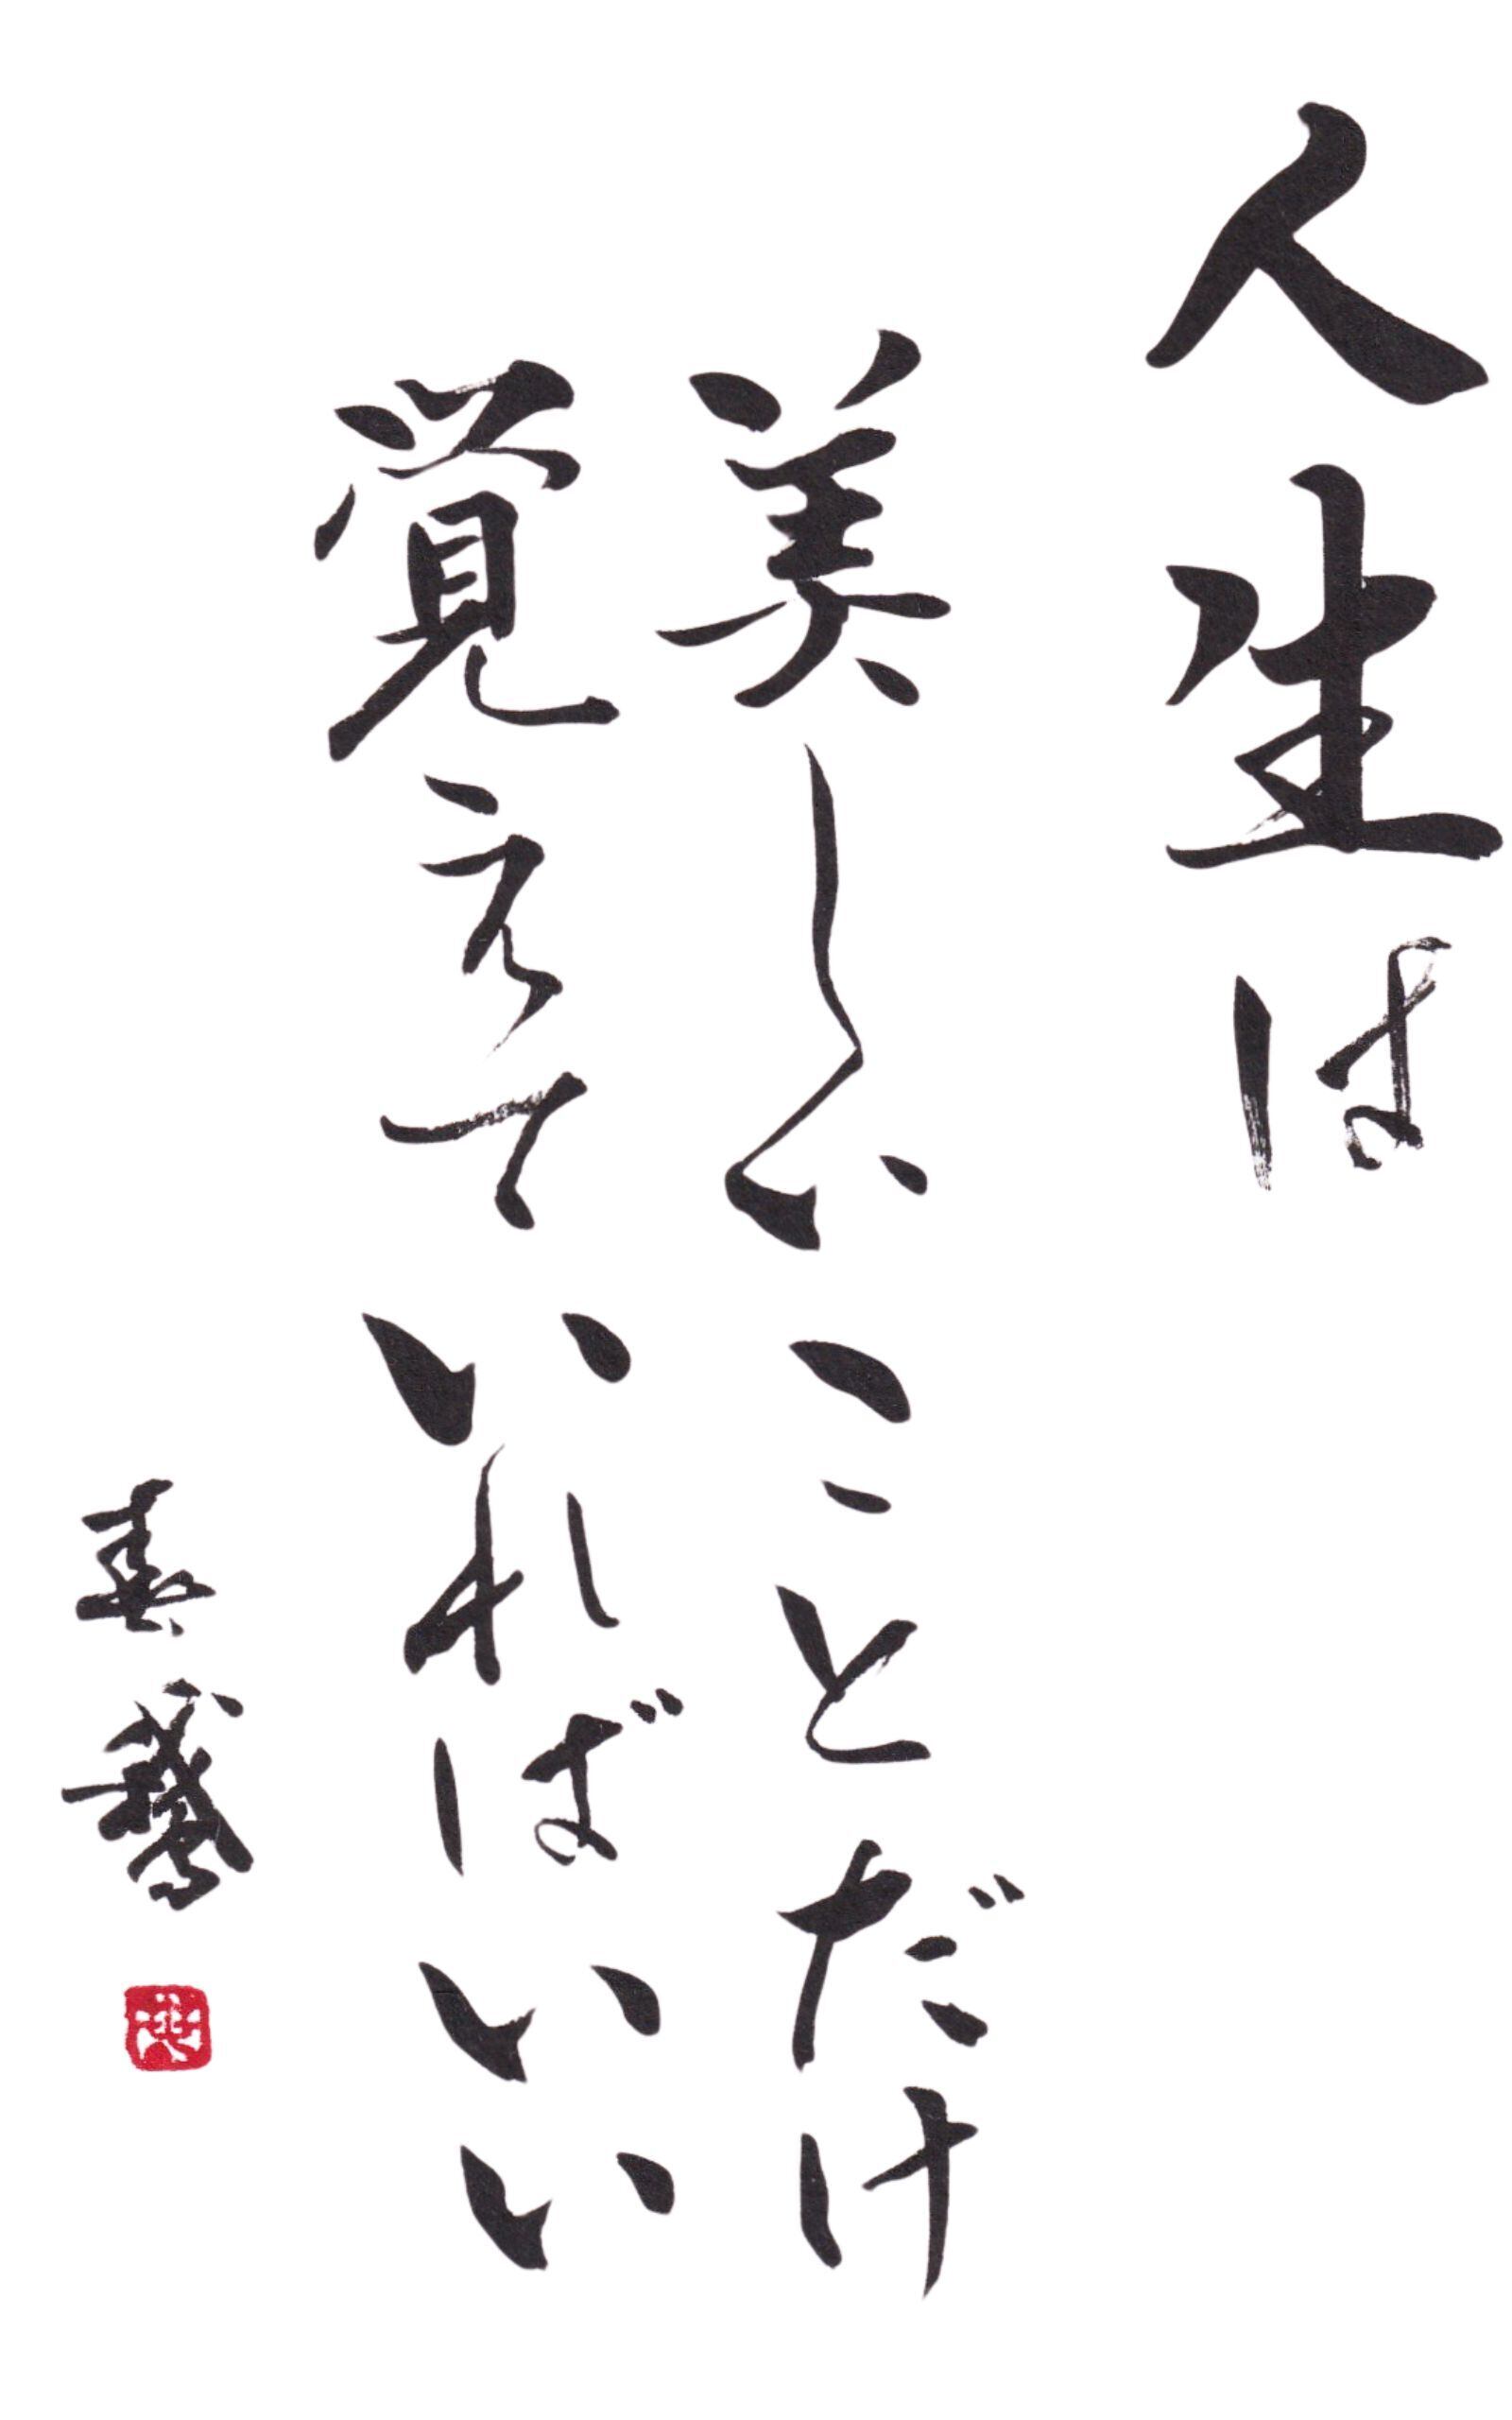 人生は
美しいことだけ
覚えていればいい
春鵞